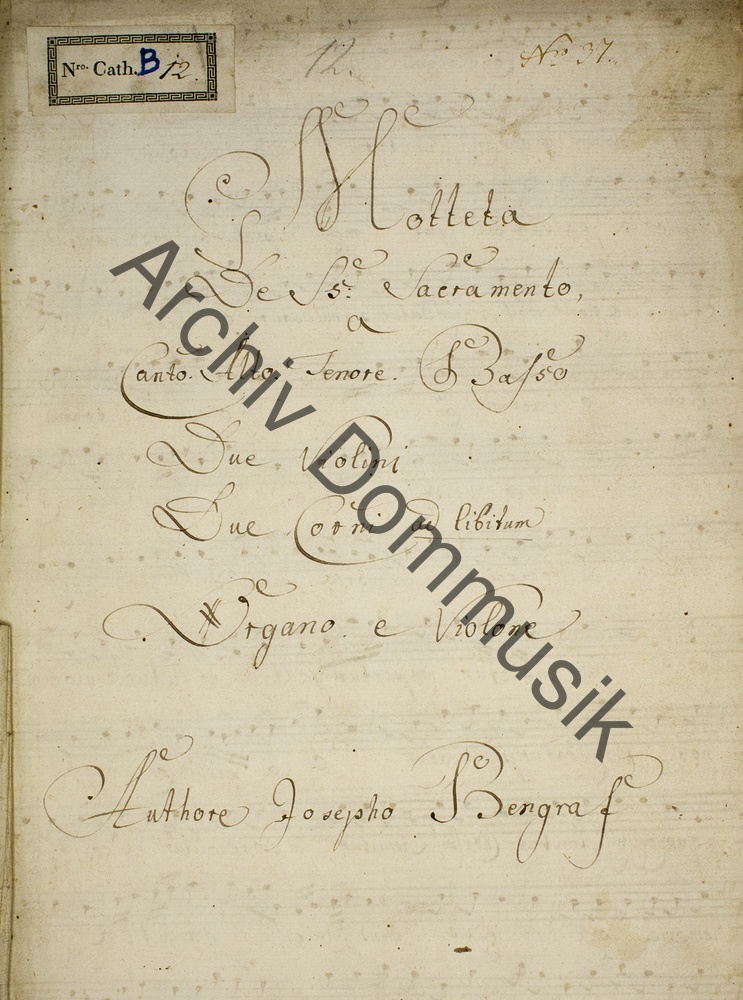 Nro. Cath. B 12.
12.
Nro 37.
Motteta
De SS: Sacramento,
a
Canto. Alto. Tenore. Basso
Due Violini
Due Corni ad libitum
Organo. e Violone
Authore Josepho Bengraf
Archiv Dommusik